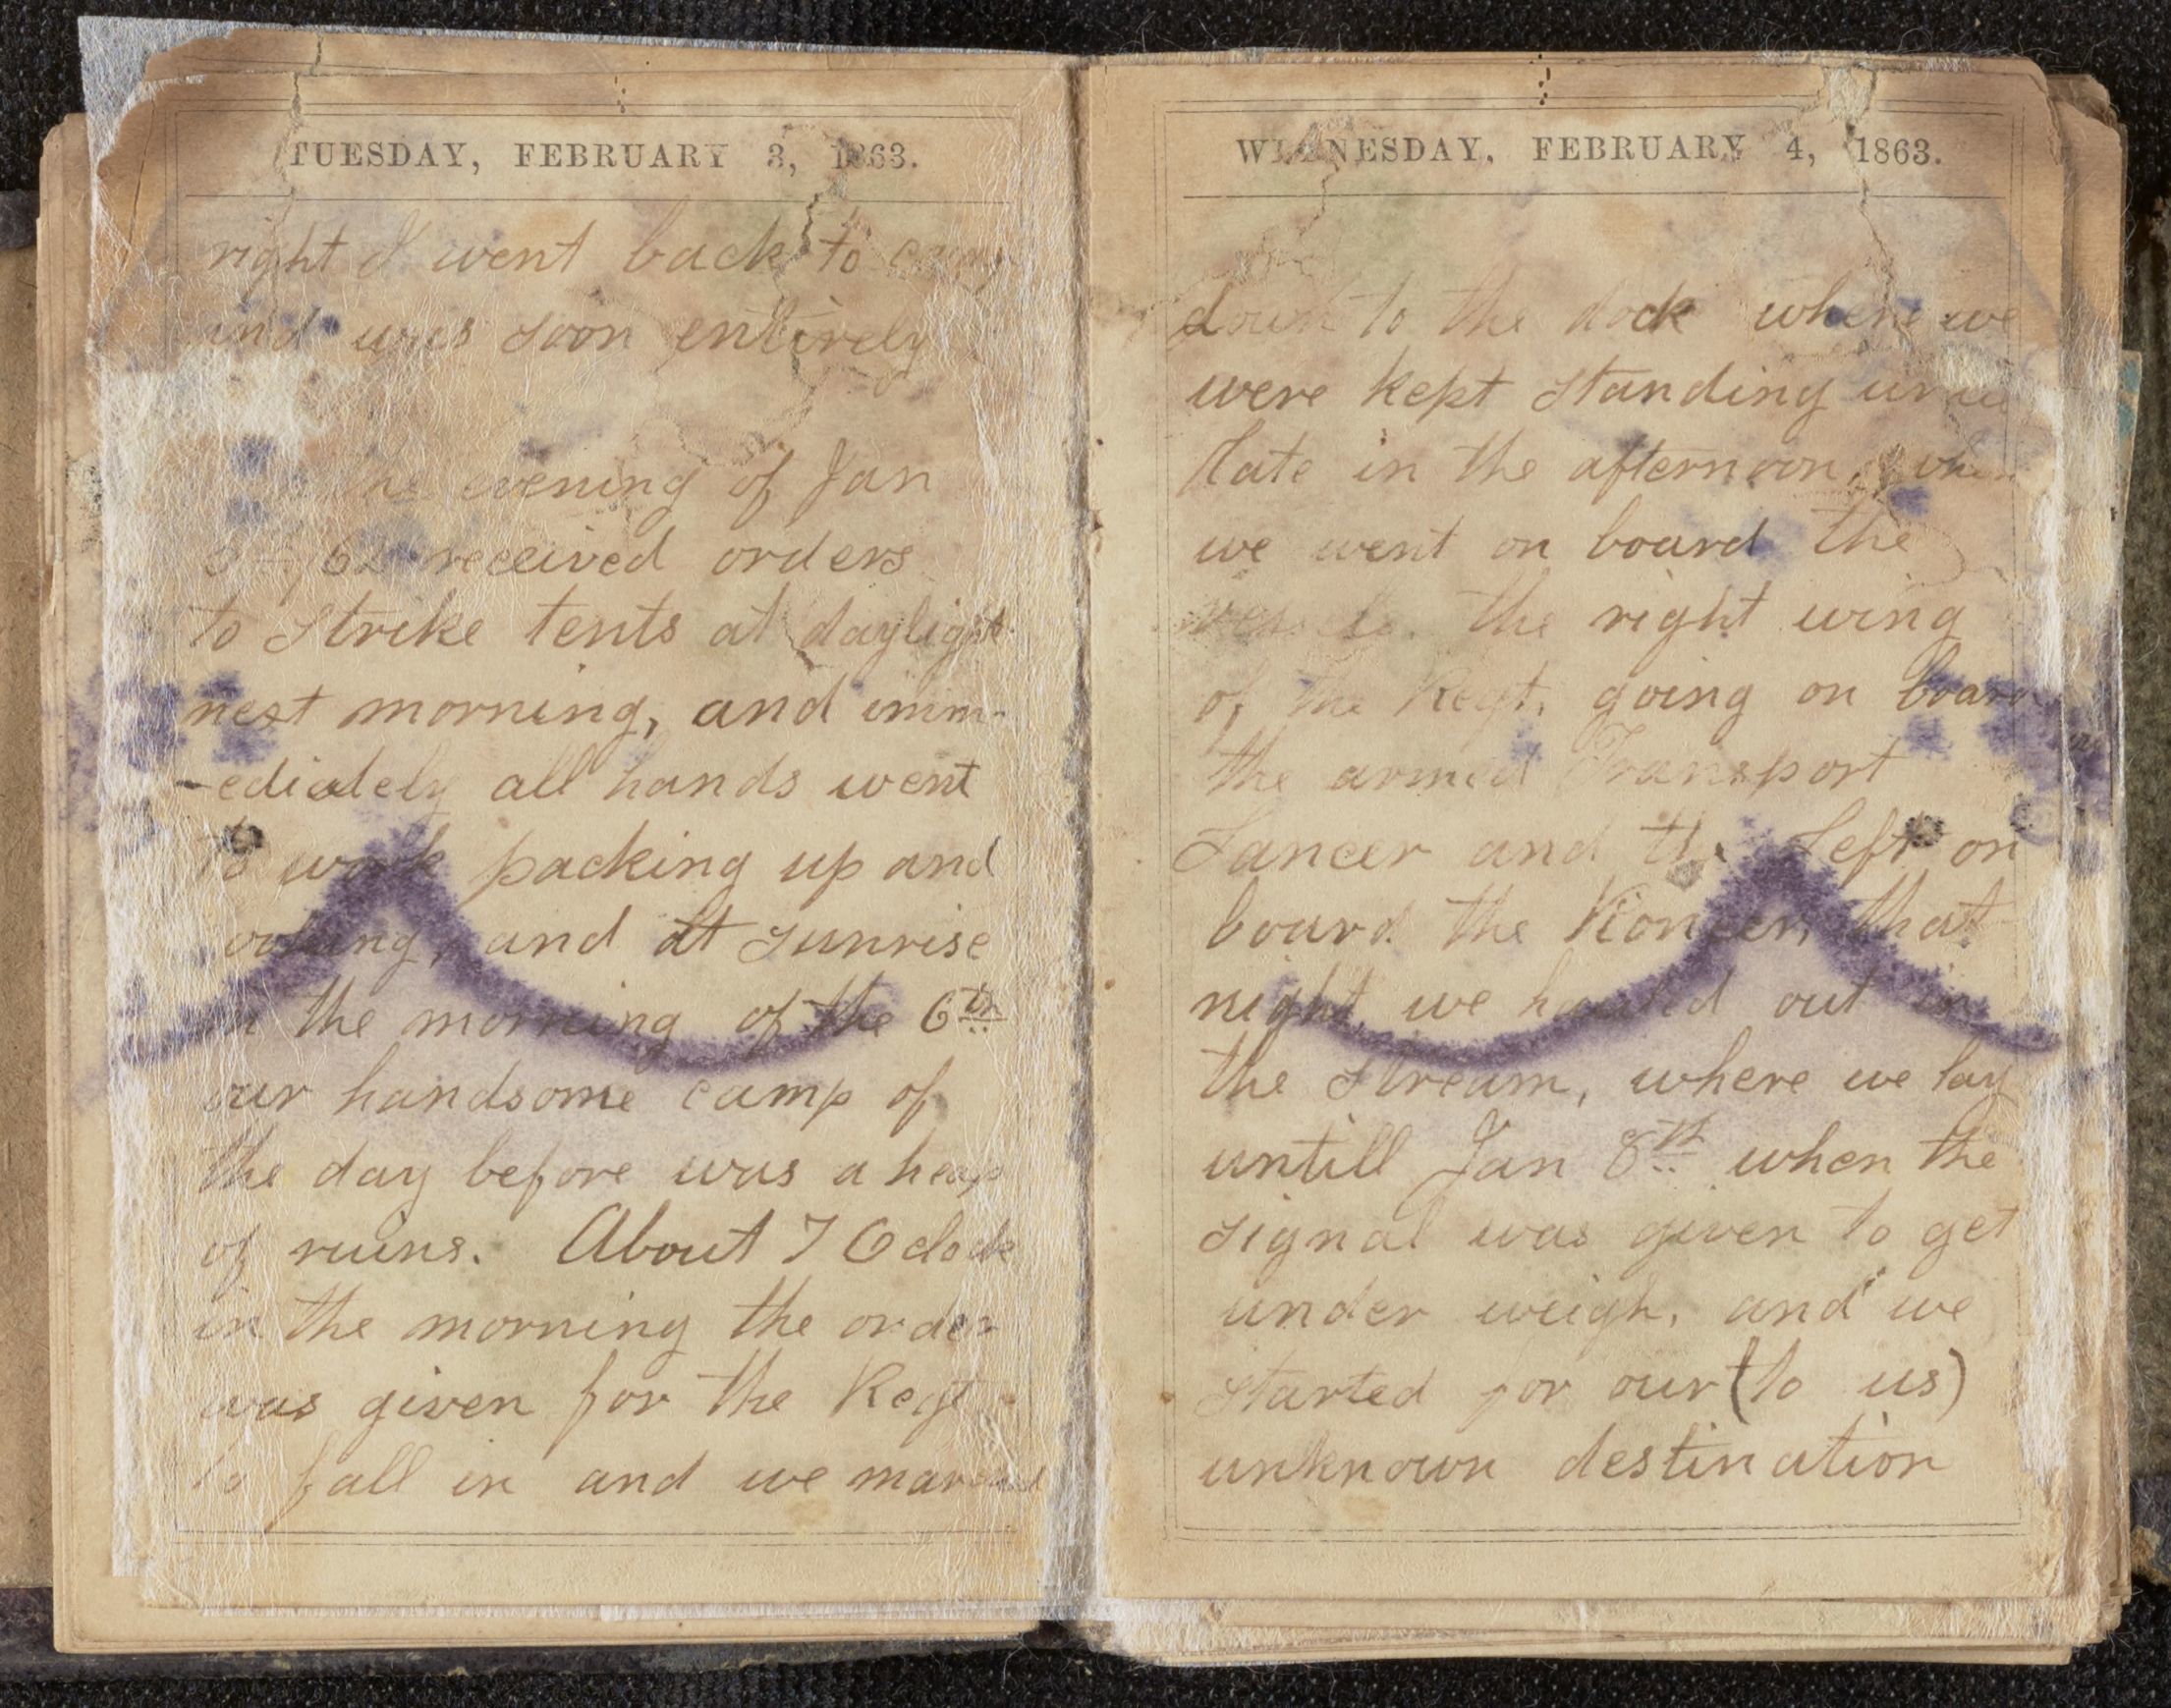 TUESDAY, FEBRUARY 3, 1863.
right I went back to
and was soon entirely
the evening of Jan
received orders
to strike tents at daylight
next morning, and imm-
-ediately all hands went
to work packing up and
and at sunrise
the morning of the 6th
our handsome camp of
the day before was a heap
of ruins. About 7 O clock
in the morning the order
was given for the Regt
to fall in and we
WEDNESDAY, FEBRUARY 4, 1863.
down to the dock where we
were kept standing
late in the afternoon, when
we went on board the
the right wing
of the Regt. going on board
the armed Transport
Lancer and the left on
board the that
night we out in
the stream, where we lay
untill Jan 8th when the
signal was given to get
under weigh, and we
started for our (to us)
unknown destination